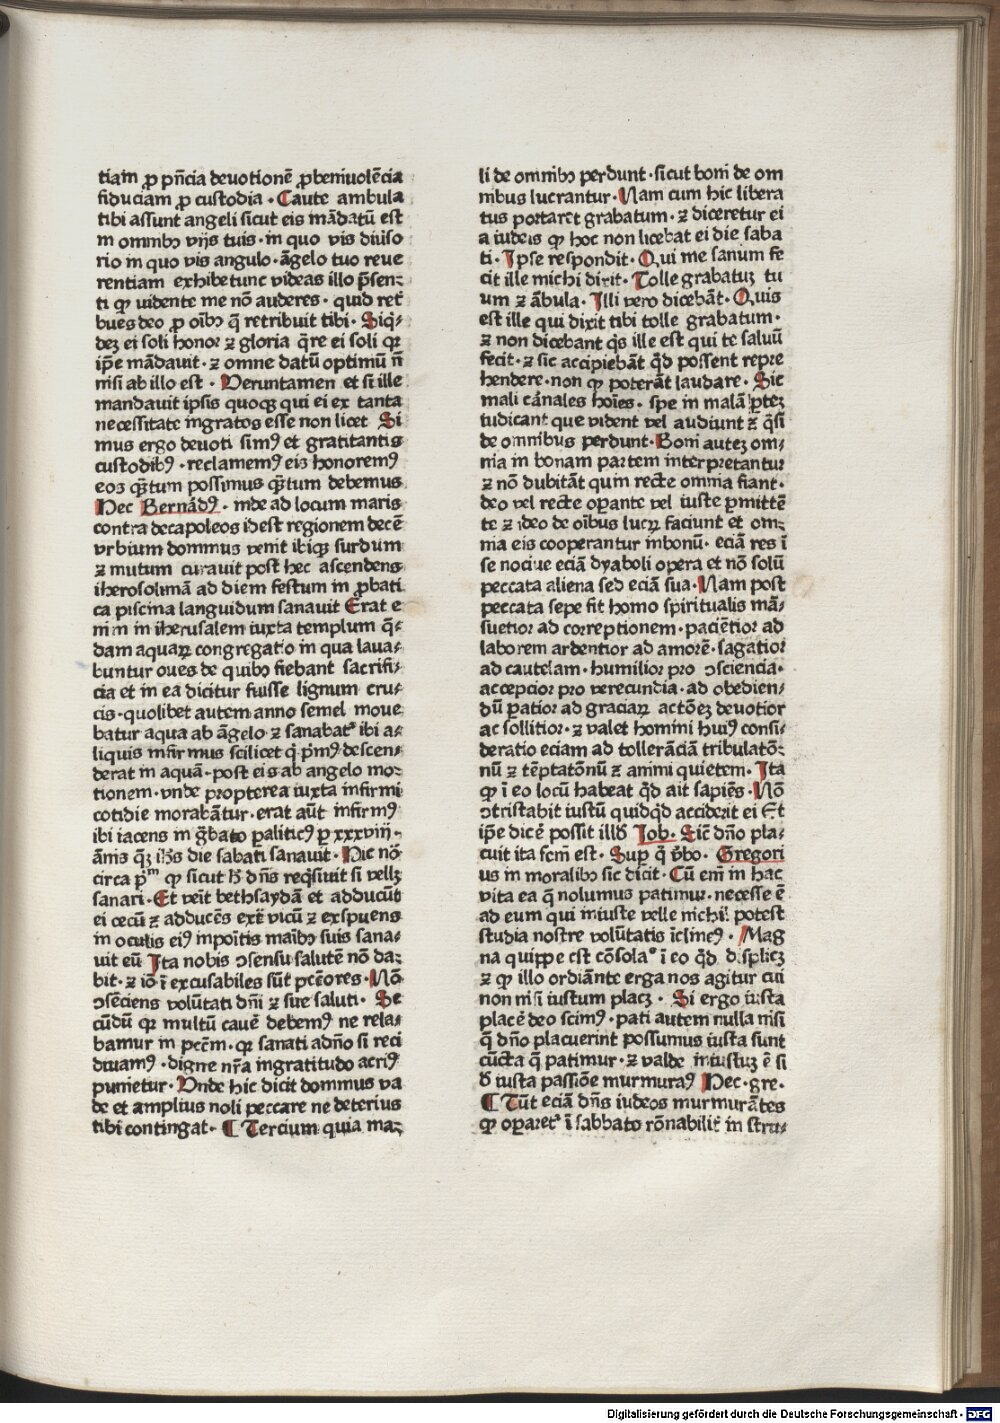 tiam ꝓ pn̄cia deuotionē ꝓ beniuolēcia
fiduciam ꝓ custodia · Caute ambula
tibi assunt angeli sicut eis mādatū est
in omnibꝫ vijs tuis · in quo vis diuiso
rio in quo vis angulo · āgelo tuo reue
rentiam exhibe tunc videas illo p̄sen⸗
ti ꝙ vidente me nō auderes · quid ret
bues deo ꝓ oībꝫ q̄ retribuit tibi · Siq⸗
deꝫ ei soli honor ⁊ gloria q̄re ei soli qꝛ
ip̄e mādauit · ⁊ omne datū optimū n̄
nisi ab illo est · Veruntamen et si ille
mandauit ipsis quoqꝫ qui ei ex tanta
necessitate ingratos esse non licet Si
mus ergo deuoti simꝰ et gratitantis
custodibꝰ · reclamemꝰ eis honoremꝰ
eos qꝫtum possimus qꝫtum debemus
Hec Bernādꝰ · inde ad locum maris
contra decapoleos id est regionem decē
vrbium dominus venit ibiqꝫ surdum
⁊ mutum curauit post hec ascendens
iherosolimā ad diem festum in ꝓbati
ca piscina languidum sanauit Erat e
nim in iherusalem iuxta templum q̄⸗
dam aquaꝝ congregatio in qua laua⸗
buntur oues de quibꝫ fiebant sacrifi⸗
cia et in ea dicitur fuisse lignum cru⸗
cis · quolibet autem anno semel moue
batur aqua ab āgelo ⁊ sanabat᷑ ibi a⸗
liquis infirmus scilicet q̇ p̄mꝰ descen⸗
derat in aquā · post eis ab angelo mo⸗
tionem · vnde propterea iuxta infirmi
cotidie morabātur · erat aūt infirmꝰ
ibi iacens in g̃bato ꝑaliticꝰ ꝑ xxxviij ·
ānis q̄ꝫ ih̄s die sabati sanauit · Hic nō
circa p̄ᵐ ꝙ sicut h̄ dn̄s req̇siuit si vellꝫ
sanari · Et veīt bethsaydā et adducūt
ei cecū ⁊ adducēs ext̄ vicū ⁊ exspuens
in oculis eiꝰ inpoītis maībꝫ suis sana⸗
uit eū Ita nobis ↄsensu salutē nō da⸗
bit · ⁊ iō ī excusabiles sūt pctōres · Nō
ↄsēciens volūtati dn̄i ⁊ sue saluti · Se
cūdū qꝛ multū cauē debemꝰ ne rela⸗
bamur in pctm̄ · qꝛ sanati ad n̄o si reci
diuamꝰ · digne nr̄a ingratitudo acriꝰ
punietur · Vnde hic dicit dominus va
de et amplius noli peccare ne deterius
tibi contingat · ¶ Tercium quia ma⸗
li de omnibꝫ perdunt · sicut boni de om
nibus lucrantur · Nam cum hic libera
tus portaret grabatum · ⁊ diceretur ei
a iudeis ꝙ hoc non licebat ei die saba
ti · Ipse respondit · Qui me sanum fe
cit ille michi dixit · Tolle grabatuꝫ tu
um ⁊ ābula · Illi vero dicebāt · Quis
est ille qui dixit tibi tolle grabatum ·
⁊ non dicebant q̇s ille est qui te saluū
fecit · ⁊ sic accipiebāt q̇d possent repre
hendere · non ꝙ poterāt laudare · Sic
mali carnales hoīes · spe in malā ꝑteꝫ
iudicant que vident vel audiunt ⁊ q̄si
de omnibus perdunt · Boni auteꝫ om⸗
nia in bonam partem interpretantur
⁊ nō dubitāt quin recte omnia fiant ·
deo vel recte oꝑante vel iuste ꝑmittē
te ⁊ ideo de oībus lucꝝ faciunt et om⸗
nia eis cooperantur in bonū · eciā res ī
se nociue eciā dyaboli opera et nō solū
peccata aliena sed eciā sua · Nam post
peccata sepe fit homo spiritualis mā⸗
suetior ad correptionem · paciētior ad
laborem ardentior ad amorē · sagatior
ad cautelam · humilior pro ↄsciencia ·
accepcior pro verecundia · ad obedien⸗
dū ꝑatior ad graciaꝝ actōeꝫ deuotior
ac sollitior · ⁊ valet homini huiꝰ consi⸗
deratio eciam ad tollerāciā tribulatō⸗
nū ⁊ tēptatōnū ⁊ animi quietem · Ita
ꝙ ī eo locū habeat q̇d ait sapiēs · Nō
ↄtristabit iustū quidq̇d acciderit ei Et
ip̄e dicē possit illđ Iob · Sic̄ dn̄o pla⸗
cuit ita fcm̄ est · Suꝑ q̄ v̄bo · Gregori
us in moralibꝫ sic dicit · Cū em̄ in hac
vita ea q̄ nolumus patimur · necesse ē
ad eum qui iniuste velle nichil potest
studia nostre volūtatis īclinēꝰ · Mag
na quippe est cōsolaᵒ ī eo q̇d displicꝫ
⁊ ꝙ illo ordiāte erga nos agitur cui
non nisi iustum placꝫ · Si ergo iusta
placē deo scimꝰ · pati autem nulla nisi
q̄ dn̄o placuerint possumus iusta sunt
cūcta q̄ patimur · ⁊ valde iniustuꝫ ē si
đ iusta passiōe murmuraꝰ Hec · gre ·
¶ Tūt eciā dn̄s iudeos murmurātes
ꝙ oꝑaret᷑ ī sabbato rōnabilit᷑ in stru⸗
Digitalisierung gefördert durch die Deutsche Forschungsgemeinschaft - DFG